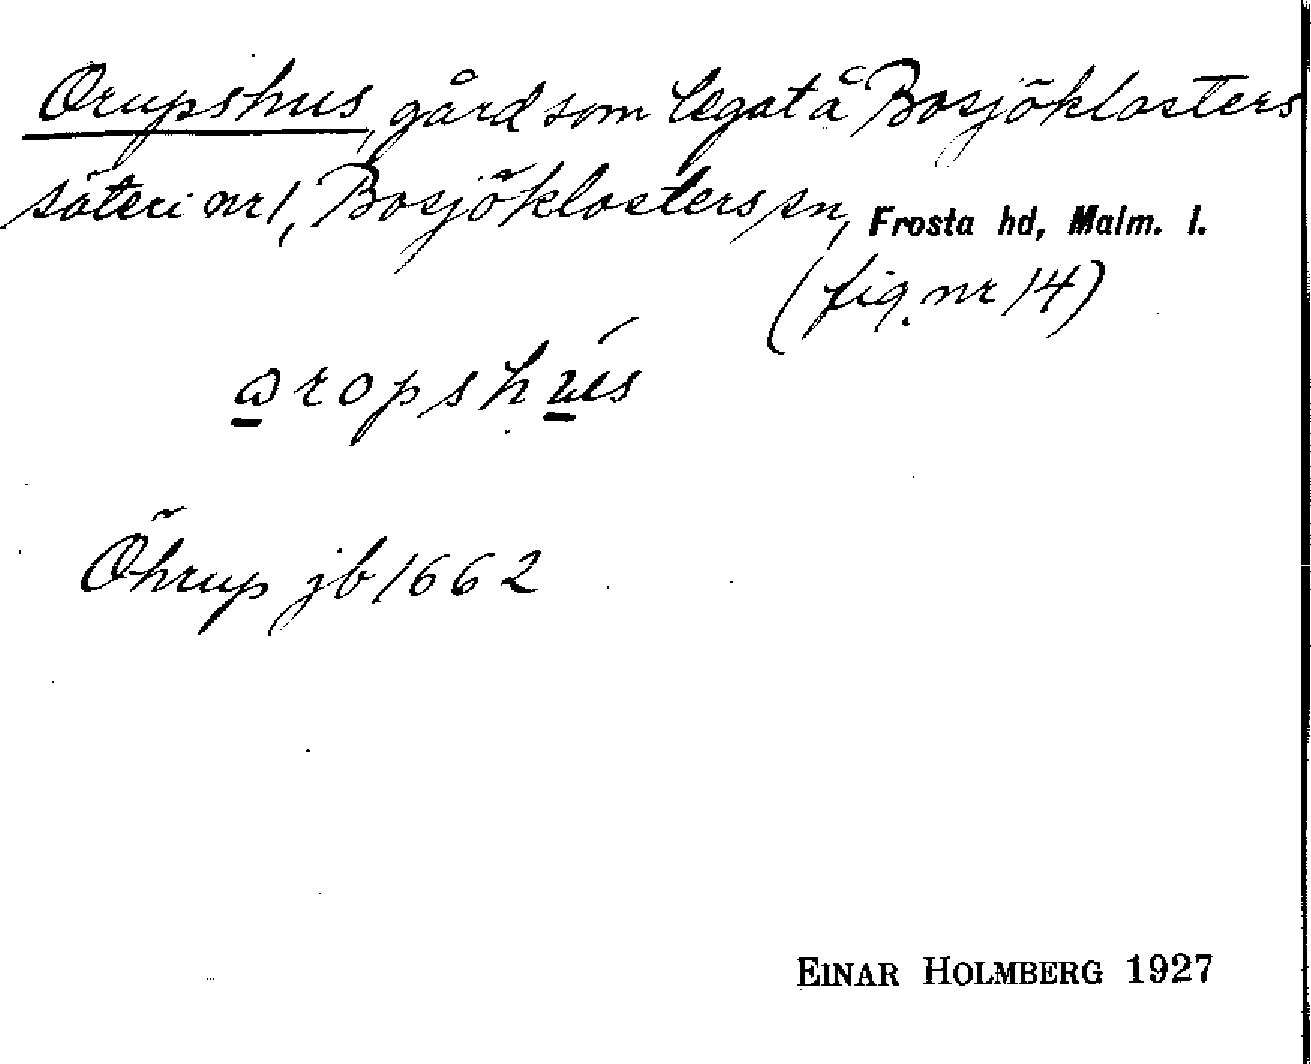 Orupshus, gård som legat å Bosjöklosters
säteri nr 1, Bosjöklosters sn, Frosta hd, Malm. l.
(fig. nr 14)
ropshus
Öhrup jb 1662
EINAR HOLMBERG 1927